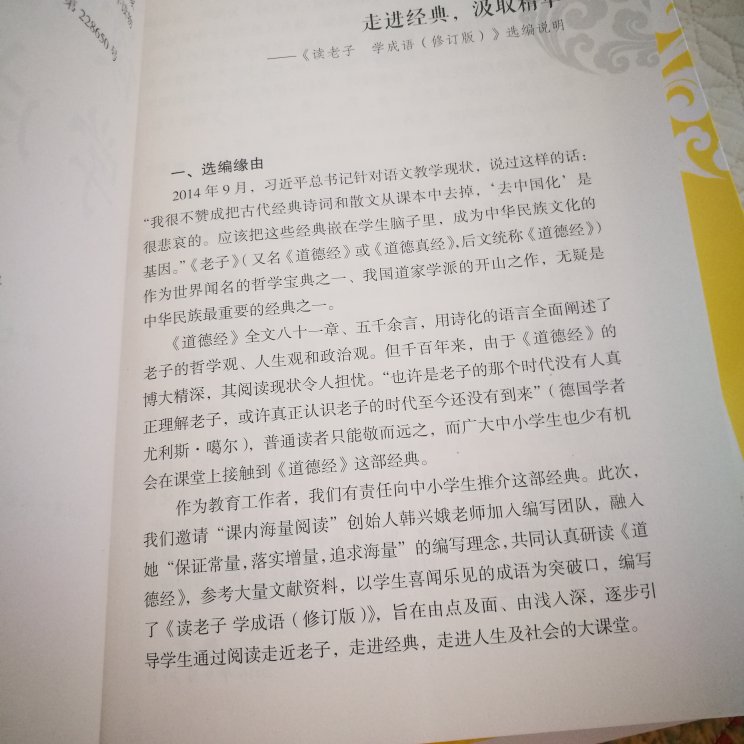 第 228650 号
走进经典，汲取精华
——《读老子　学成语（修订版）》选编说明
一、选编缘由
2014 年 9 月，习近平总书记针对语文教学现状，说过这样的话：
“我很不赞成把古代经典诗词和散文从课本中去掉，‘去中国化’是
很悲哀的。应该把这些经典嵌在学生脑子里，成为中华民族文化的
基因。”《老子》（又名《道德经》或《道德真经》，后文统称《道德经》）
作为世界闻名的哲学宝典之一、我国道家学派的开山之作，无疑是
中华民族最重要的经典之一。
《道德经》全文八十一章、五千余言，用诗化的语言全面阐述了
老子的哲学观、人生观和政治观。但千百年来，由于《道德经》的
博大精深，其阅读现状令人担忧。“也许是老子的那个时代没有人真
正理解老子，或许真正认识老子的时代至今还没有到来”（德国学者
尤利斯·噶尔），普通读者只能敬而远之，而广大中小学生也少有机
会在课堂上接触到《道德经》这部经典。
作为教育工作者，我们有责任向中小学生推介这部经典。此次，
我们邀请“课内海量阅读”创始人韩兴娥老师加入编写团队，融入
她“保证常量，落实增量，追求海量”的编写理念，共同认真研读《道
德经》，参考大量文献资料，以学生喜闻乐见的成语为突破口，编写
了《读老子 学成语（修订版）》，旨在由点及面、由浅入深，逐步引
导学生通过阅读走近老子，走进经典，走进人生及社会的大课堂。